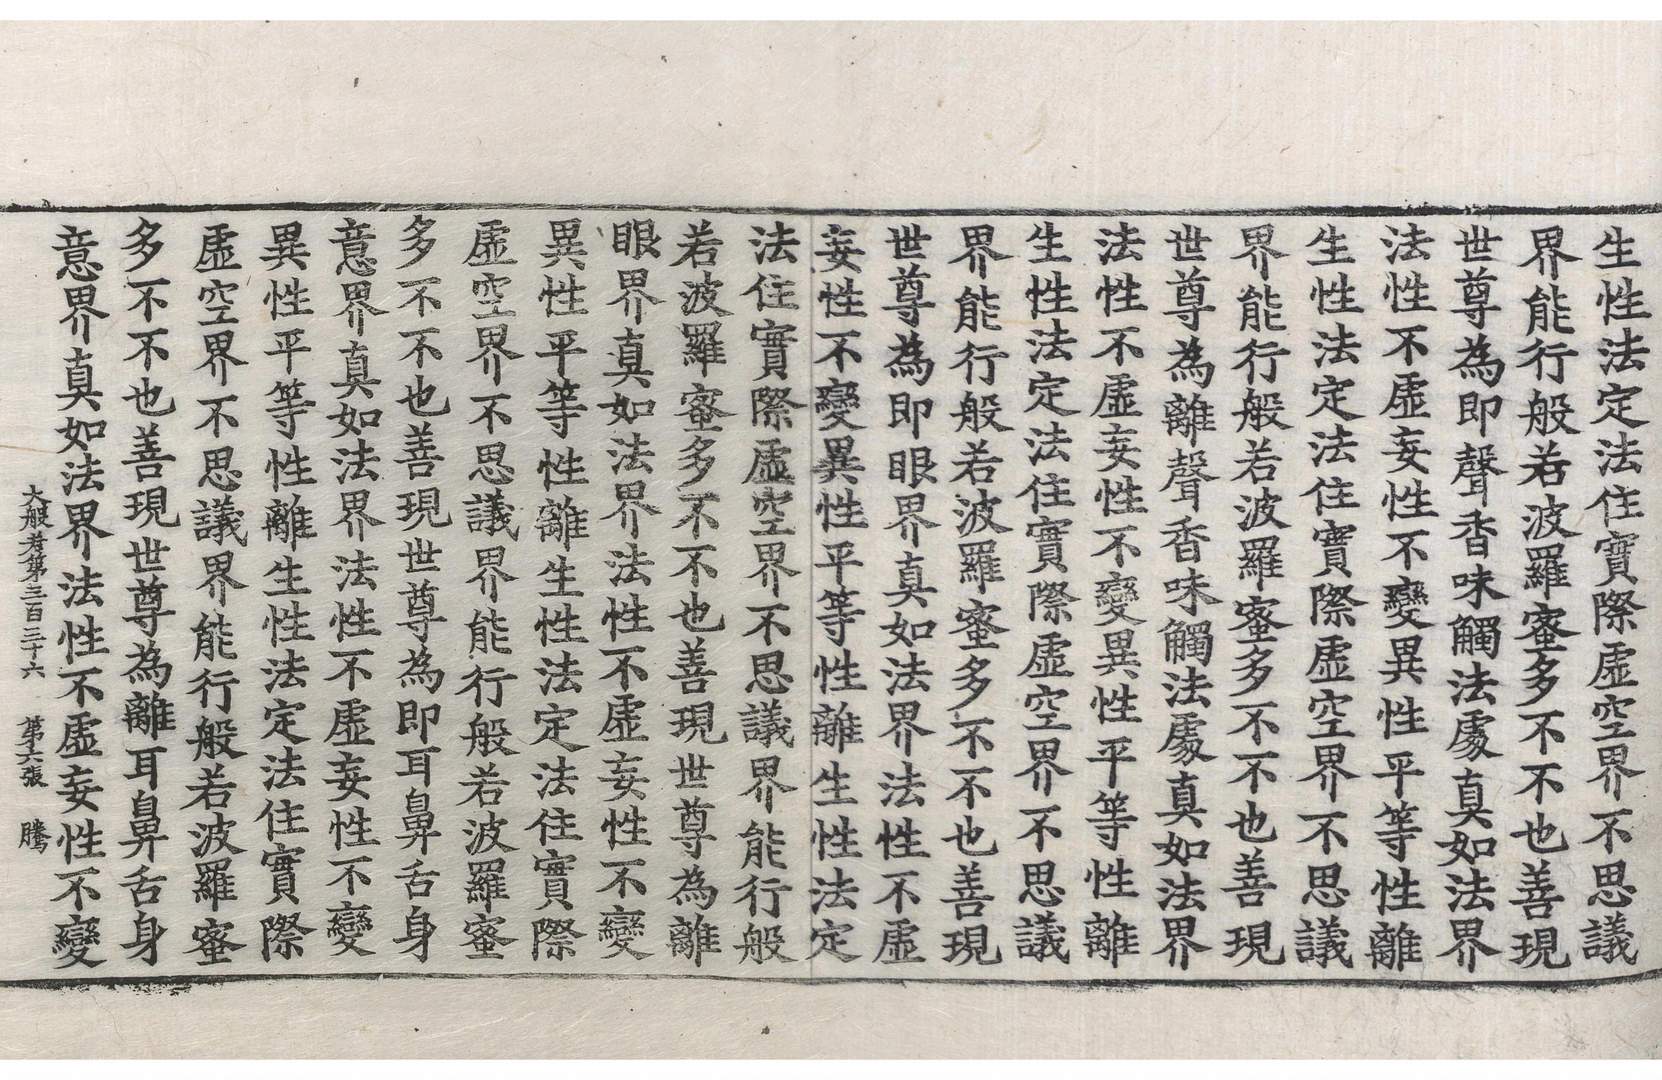 生性法定法住實際虛空界不思議
界能行般若波羅蜜多不不也善現
世尊為即聲香味觸法處真如法界
法性不虛妄性不變異性平等性離
生性法定法住實際虛空界不思議
界能行般若波羅蜜多不不也善現
世尊為離聲香味觸法處真如法界
法性不虛妄性不變異性平等性離
生性法定法住實際虛空界不思議
界能行般若波羅蜜多不不也善現
世尊為即眼界真如法界法性不虛
妄性不變異性平等性離生性法定
法住實際虛空界不思議界能行般
若波羅蜜多不不也善現世尊為離
眼界真如法界法性不虛妄性不變
異性平等性離生性法定法住實際
虛空界不思議界能行般若波羅蜜
多不不也善現世尊為即耳鼻舌身
意界真如法界法性不虛妄性不變
異性平等性離生性法定法住實際
虛空界不思議界能行般若波羅蜜
多不不也善現世尊為離耳鼻舌身
意界真如法界法性不虛妄性不變
大般若第三百三十六 第十六張 騰